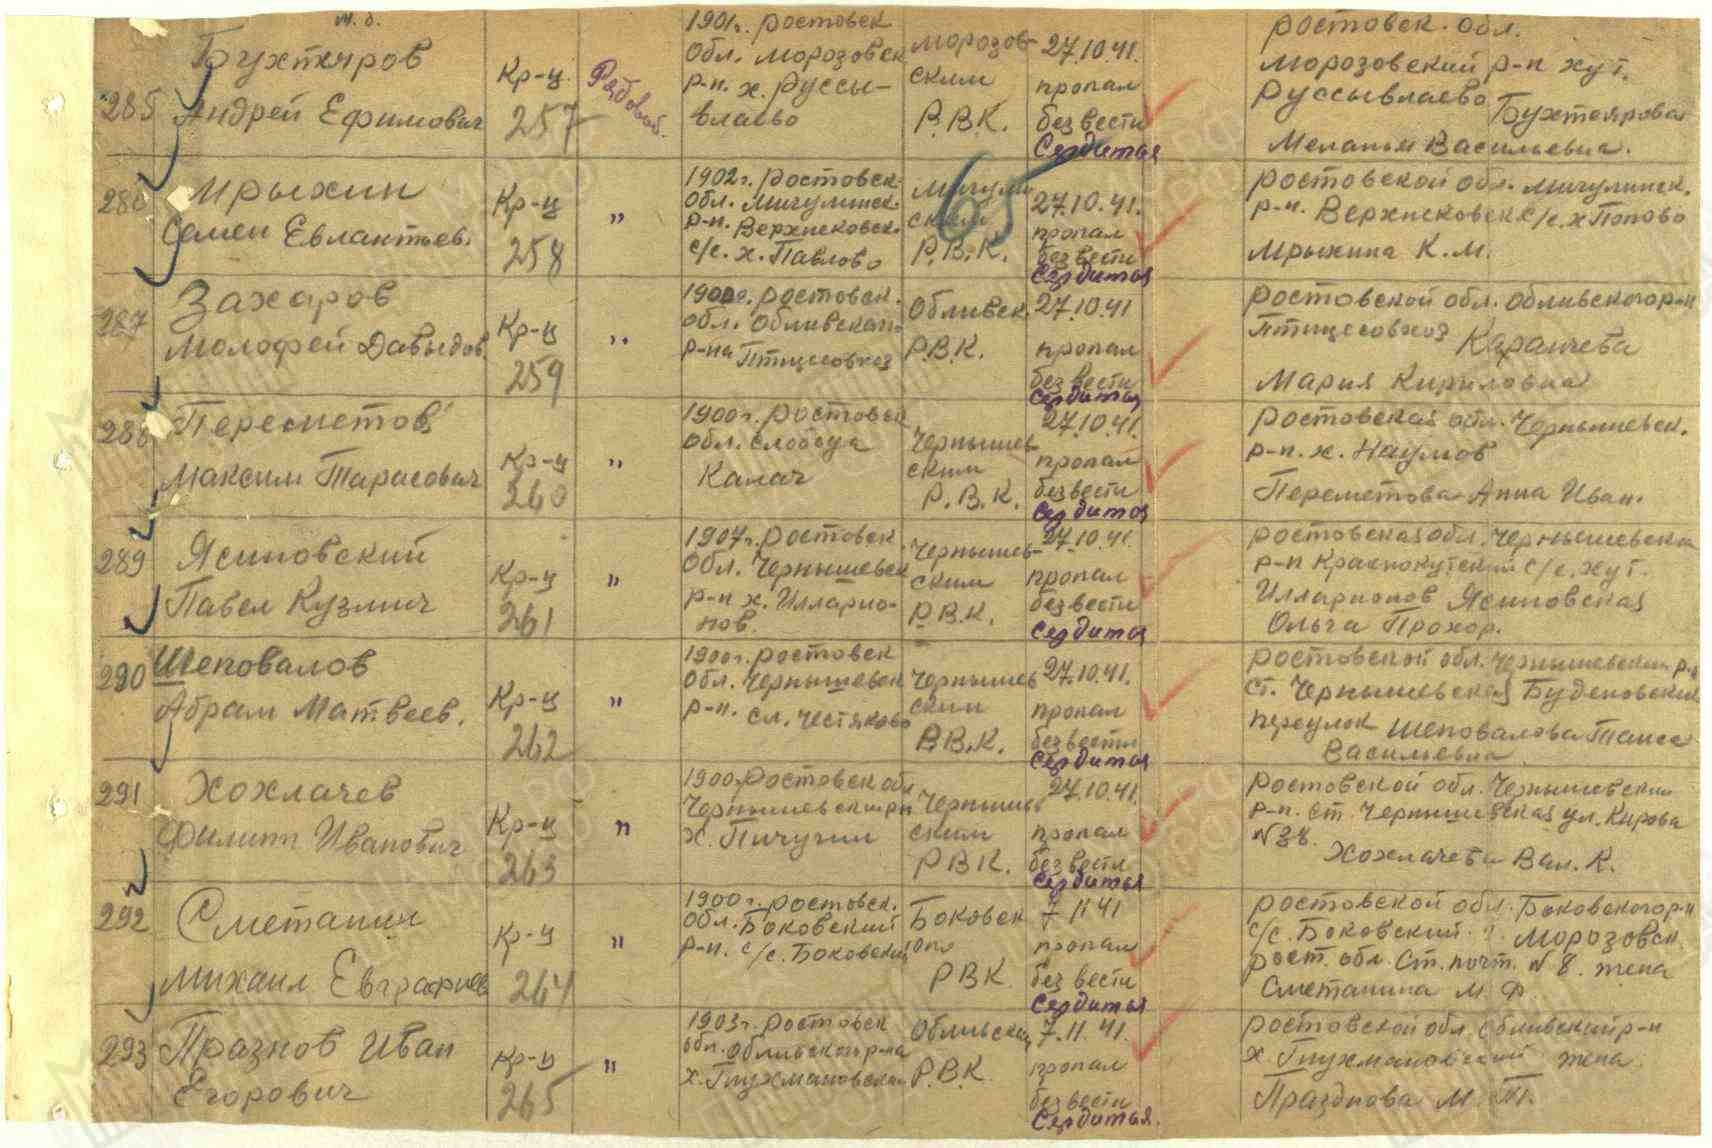 285
Бухтяров
Андрей Ефимович
Кр-ц
257
Рядовой.
1901г. Ростовск
обл. Морозовск
р-н. х. Руссы-
влаево
Морозов-
ским
Р.В.К.
27.10.41.
пропал
без вести
Сердитая
Ростовск. обл.
Морозовский р-н хут.
Руссывлаево Бухтоярова
Меланья Васильевна.
286
Мрыхин
Семен Евлантьев.
Кр-ц
258
"
1902г. Ростовск.
обл. Мигулинск.
р-н. Верхняковск.
с/с. х. Павлово
Мигулин
ским
Р.В.К.
65
27.10.41.
пропал
без вести
Сердитая
Ростовской обл. Мигулинск.
р-н. Верхняковск с/с. х Попово
Мрыхина К.М.
287
Захаров
Молофей Давыдов
Кр-ц
259
"
1900г. Ростовск.
обл. Обливского
р-на Птицесовхоз
Обливск.
Р.В.К.
27.10.41
пропал
без вести
Сердитая
Ростовской обл. Обливского р-н
Птицесовхоз Каранчева
Мария Кириловна
288
Переметов
Максим Тарасович
Кр-ц
260
"
1900г. Ростовск
обл. Слобода
Калач
Чернышев
ским
Р.В.К.
27.10.41.
пропал
без вести
Сердитая
Ростовская обл. Чернышевск.
р-н. х. Наумов
Переметова Анна Иван.
289
Ясиновский
Павел Кузмич
Кр-ц
261
"
1907г. Ростовск.
обл. Чернышевск
р-н х. Илларио-
нов.
Чернышев-
ским
Р.В.К.
27.10.41.
пропал
без вести
Сердитая
Ростовская обл. Чернышевский
р-н Краснокутский с/с. хут.
Илларионов Ясиновская
Ольга Прохор.
290
Шеповалов
Абрам Матвеев.
Кр-ц
262
"
1900г. Ростовск
обл. Чернышевск
р-н. сл. Чистяково
Чернышев
ским
Р.В.К.
27.10.41.
пропал
без вести
Сердитая
Ростовской обл. Чернышевский р-н
ст. Чернышевская Буденовский
переулок Шеповалова Таиса
Васильевна
291
Хохлачев
Филипп Иванович
Кр-ц
263
"
1900 Ростовск обл
Чернышевский рн
х. Пичугин
Чернышев
ским
РВК.
27.10.41.
пропал
без вести
Сердитая
Ростовской обл. Чернышевский
р-н. ст. Чернышевская ул. Кирова
N38.
Хохлачева Вал. К.
292
Сметанин
Михаил Евграфиев
Кр-ц
264
"
1900г. Ростовск.
обл. Боковский
р-н. с/с. Боковский
Боковск
РВК
7.11.41
пропал
без вести
Сердитая
Ростовской обл. Боковского р-н
с/с. Боковский Морозовск.
рост. обл. ст. почт. N 8. жена
Сметанина М Ф
293
Празнов Иван
Егорович
Кр-ц
265
"
1903г. Ростовск
обл. Обливского р-на
х. Глухмановский
Обливская
Р.В.К.
7.11.41.
пропал
без вести
Сердитая.
Ростовской обл. Обливский р-н
х. Глухмановский жена
Празднова М. Т.